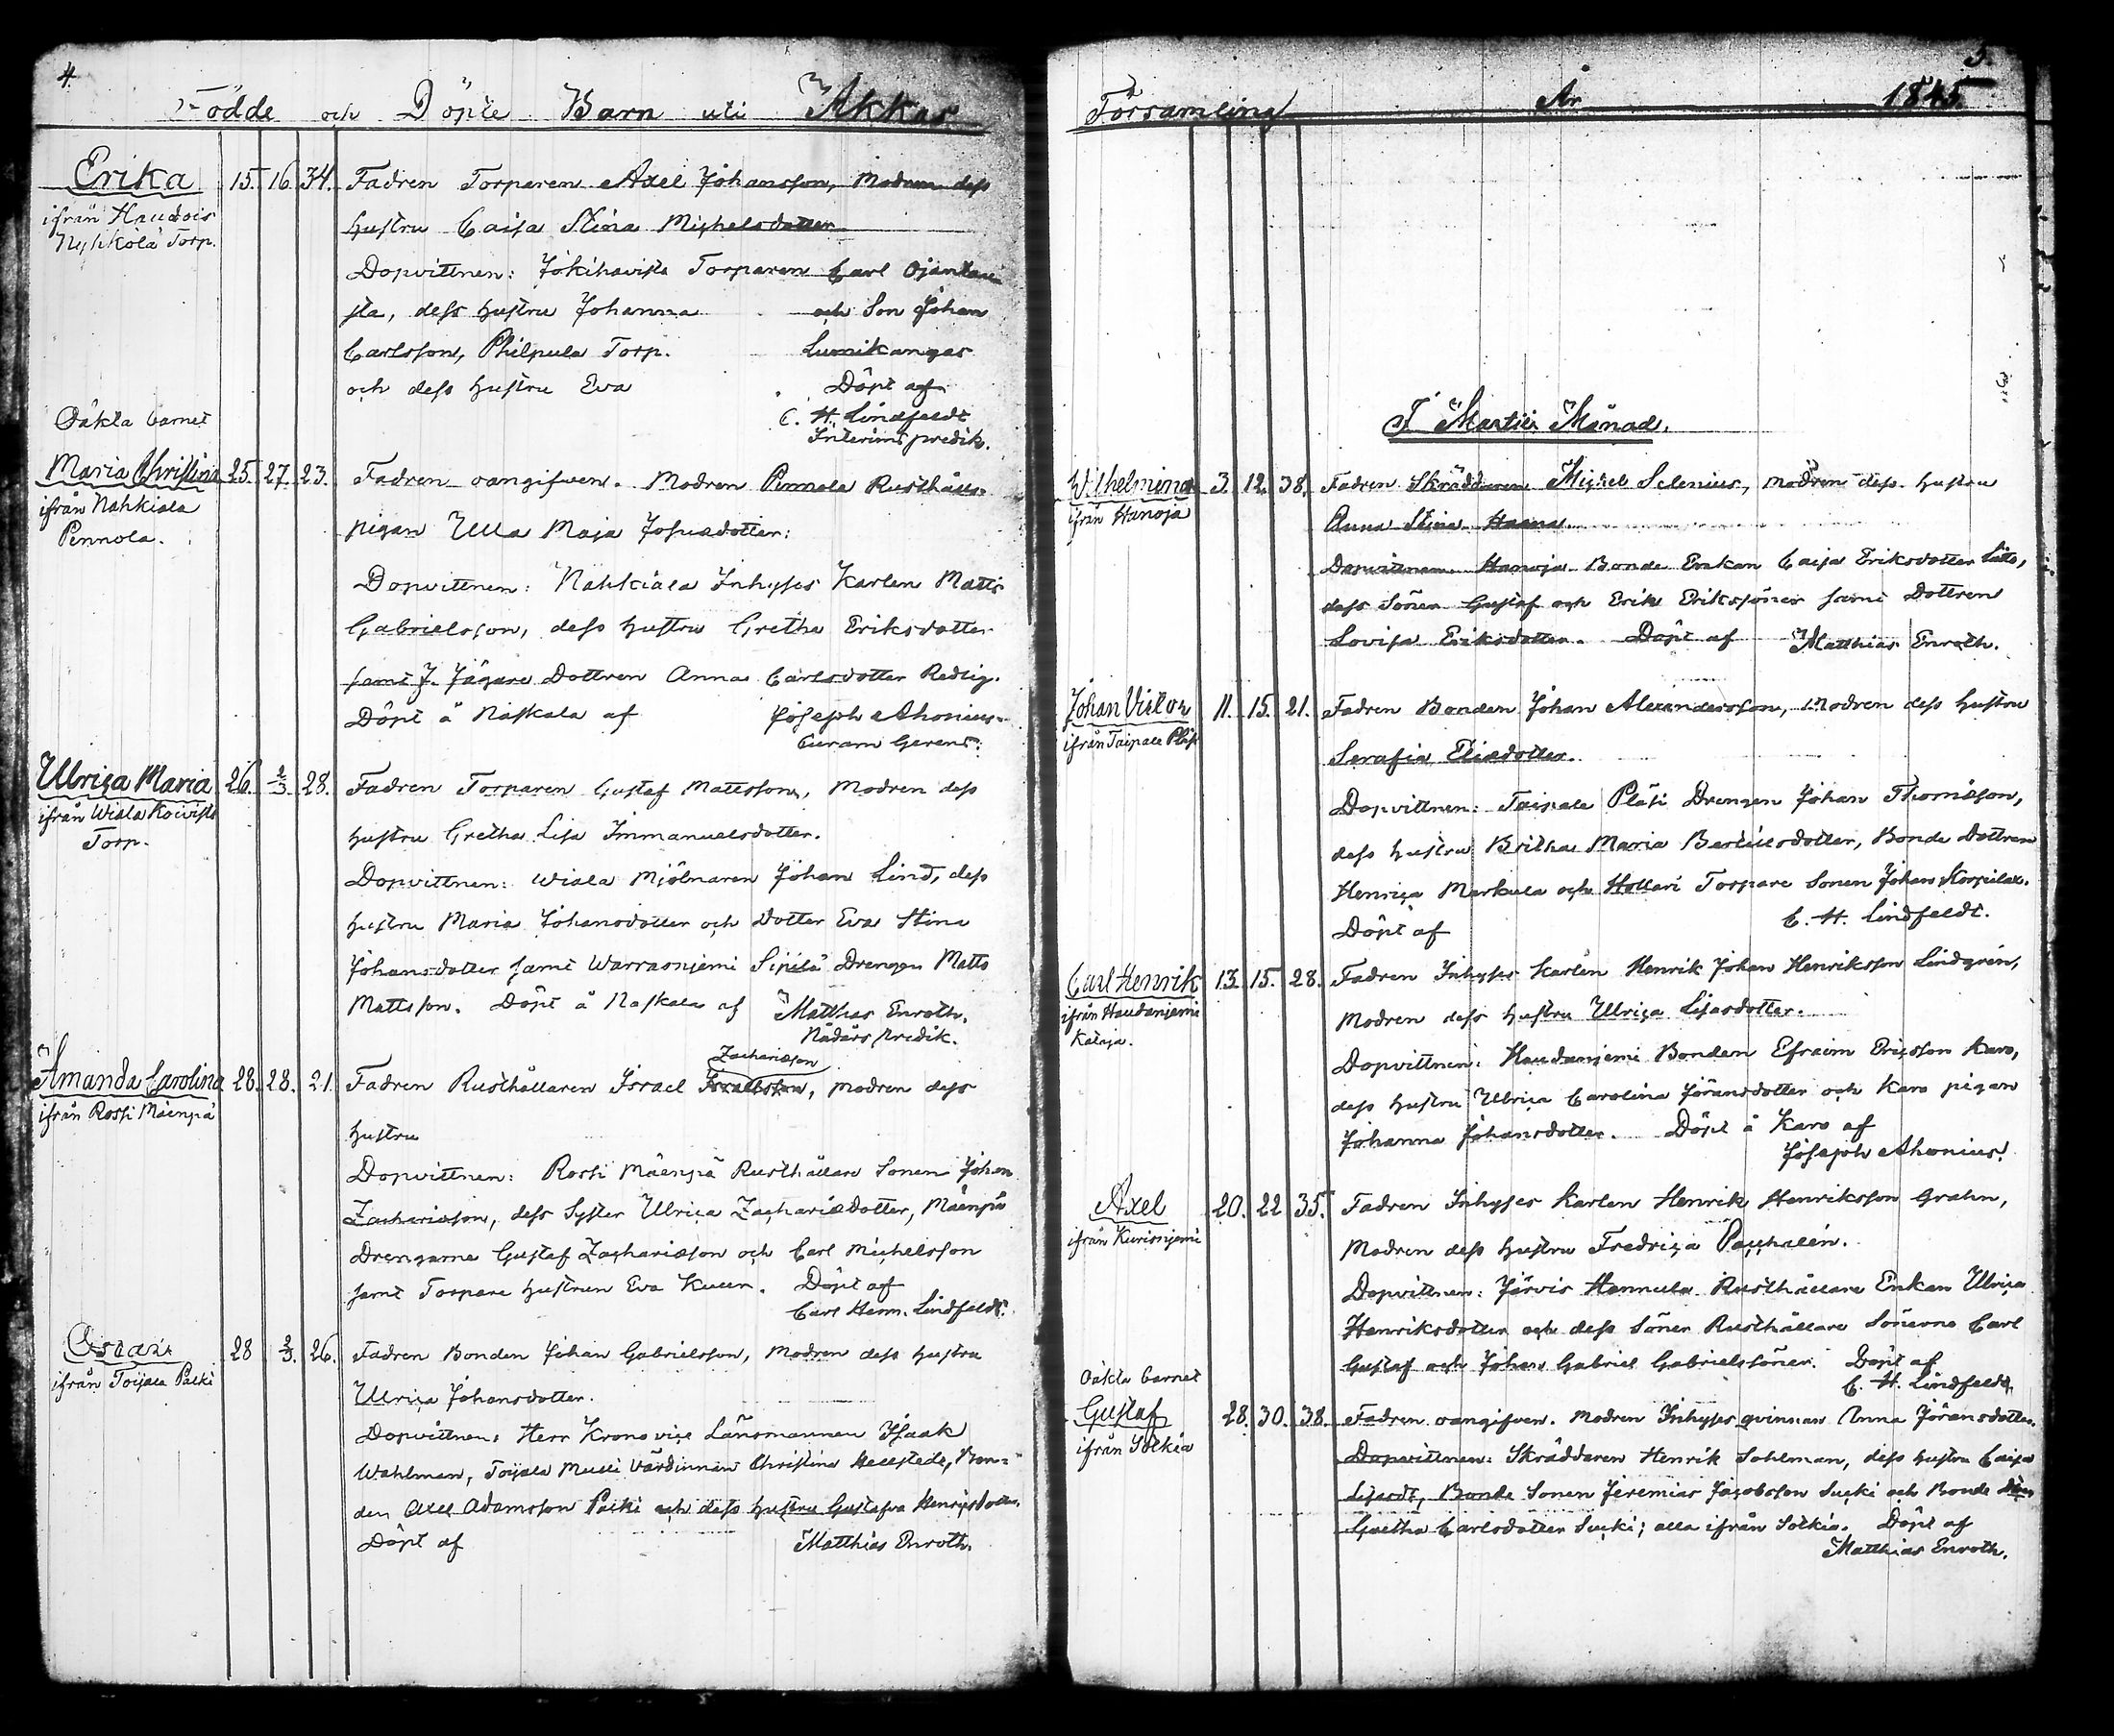 4.
Födde och Döpte Barn uti Akkas
Erika 15. 16. 34. Fadren Torparen Axel Johansson, Modren dess
ifrån Haudois hustru Caisa Stina Michelsdotter
Nypkölä Torp.
Dopvittnen: Jokihavista Torparen Carl Ojantau
sta, dess hustru Johanna och Son Johan
Carlsson, Philpula Torp. Lumikangas
och dess hustru Eva Döpt af
C. H. Lindfeldt
Interims predik.
Oäkta barnet
Maria Christina 25. 27. 23. Fadren oangifven. Modren Pennola Rusthålls-
ifrån Nahkiala
Pennola.
pigan Ulla Maja Josuædotter:
Dopvittnen: Nahkiala Inhyses Karlen Matts
Gabrielsson, dess hustru Gretha Eriksdotter
samt f. Jägare Dottren Anna Carlsdotter Redlig.
Döpt å Naskala af Joseph Ahonius.
Curam Gerens:
Ulrica Maria 26. 2/3. 28. Fadren Torparen Gustaf Mattsson, Modren dess
ifrån Wiala Koivisto
Torp.
hustru Gretha Lisa Immanuelsdotter.
Dopvittnen: Wiala Mjölnaren Johan Lind, dess
hustru Maria Johansdotter och Dotter Eva Stina
Johansdotter samt Warrasniemi Sipilä Drengen Matts
Mattsson. Döpt å Naskala af Matthias Enroth.
Nådårs predik.
Amanda Carolina 28. 28. 21. Fadren Rusthållaren Israel Zachariæson, modren dess
ifrån Rossi Mäenpä
hustru
Dopvittnen: Rossi Mäenpä Rusthållare Sonen Johan
Zachariæson, dess Syster Ulrica Zachariædotter, Mäenpä
Drengarne Gustaf Zachariæson och Carl Michelsson
samt Torpare hustrun Eva Kuur. Döpt af
Carl Henr. Lindfeldt.
Oscar 28 2/3. 26. Fadren Bonden Johan Gabrielsson, modren dess hustru
ifrån Toijala Palki
Ulrica Johansdotter.
Dopvittnen: Herr Kronovice Länsmannen Isaak
Wahlman, Toijala Musti Värdinnan Christina Hellstedt, Bon-
den Axel Adamsson Palki och dess hustru Gustafva Henricsdotter.
Döpt af Matthias Enroth.
5.
Församling År 1845.
I Martii Månad.
Wilhelmina 3. 12. 38. Fadren Skräddaren Michel Selenius, modren dess hustru
ifrån Hanoja
Anna Stina Haana.
Dopvittnen: Hanoja Bonde Enkan Caisa Eriksdotter
dess Söner Gustaf och Erik Erikssöner samt Dottren
Lovisa Eriksdotter. Döpt af Matthias Enroth.
Johan Victor 11. 15. 21. Fadren Bonden Johan Alexandersson, Modren dess hustru
ifrån Taipale
Serafia Eliædotter.
Dopvittnen: Taipale Pläsi Drengen Johan Thomasson,
dess hustru Britha Maria Bertilsdotter, Bonde Dottren
Henrica Markula och Hollari Torpare Sonen Johan Korpilax.
Döpt af C. H. Lindfeldt.
Carl Henrik 13. 15. 28. Fadren Inhyses Karlen Henrik Johan Henriksson Lindgrén,
ifrån Haudanjemi
Kälaja.
Modren dess hustru Ulrica Lisasdotter.
Dopvittnen: Haudanjemi Bonden Efraim Ericsson Karo,
dess hustru Ulrica Carolina Jöransdotter och Karo pigan
Johanna Johansdotter. Döpt å Karo af
Joseph Ahonius.
Axel 20. 22 35. Fadren Inhyses Karlen Henrik Henriksson Grahn,
ifrån Kurisnjemi
Modren dess hustru Fredrica Pacchalén.
Dopvittnen: Järvis Hannula Rusthållare Enkan Ulrica
Henriksdotter och dess Söner Rusthållare Sönerne Carl
Gustaf och Johan Gabriel Gabrielssöner. Döpt af
C. H. Lindfeldt.
Oäkta barnet
Gustaf 28. 30. 38. Fadren oangifven. Modren Inhyses qvinnan Anna Jöransdotter.
ifrån Sotkia
Dopvittnen: Skräddaren Henrik Sohlman, dess hustru Caisa
Lisasdr, Bonde Sonen Jeremias Jacobsson Sucki och Bonde
Gretha Carlsdotter Sucki; alla ifrån Sotkia. Döpt af
Matthias Enroth.